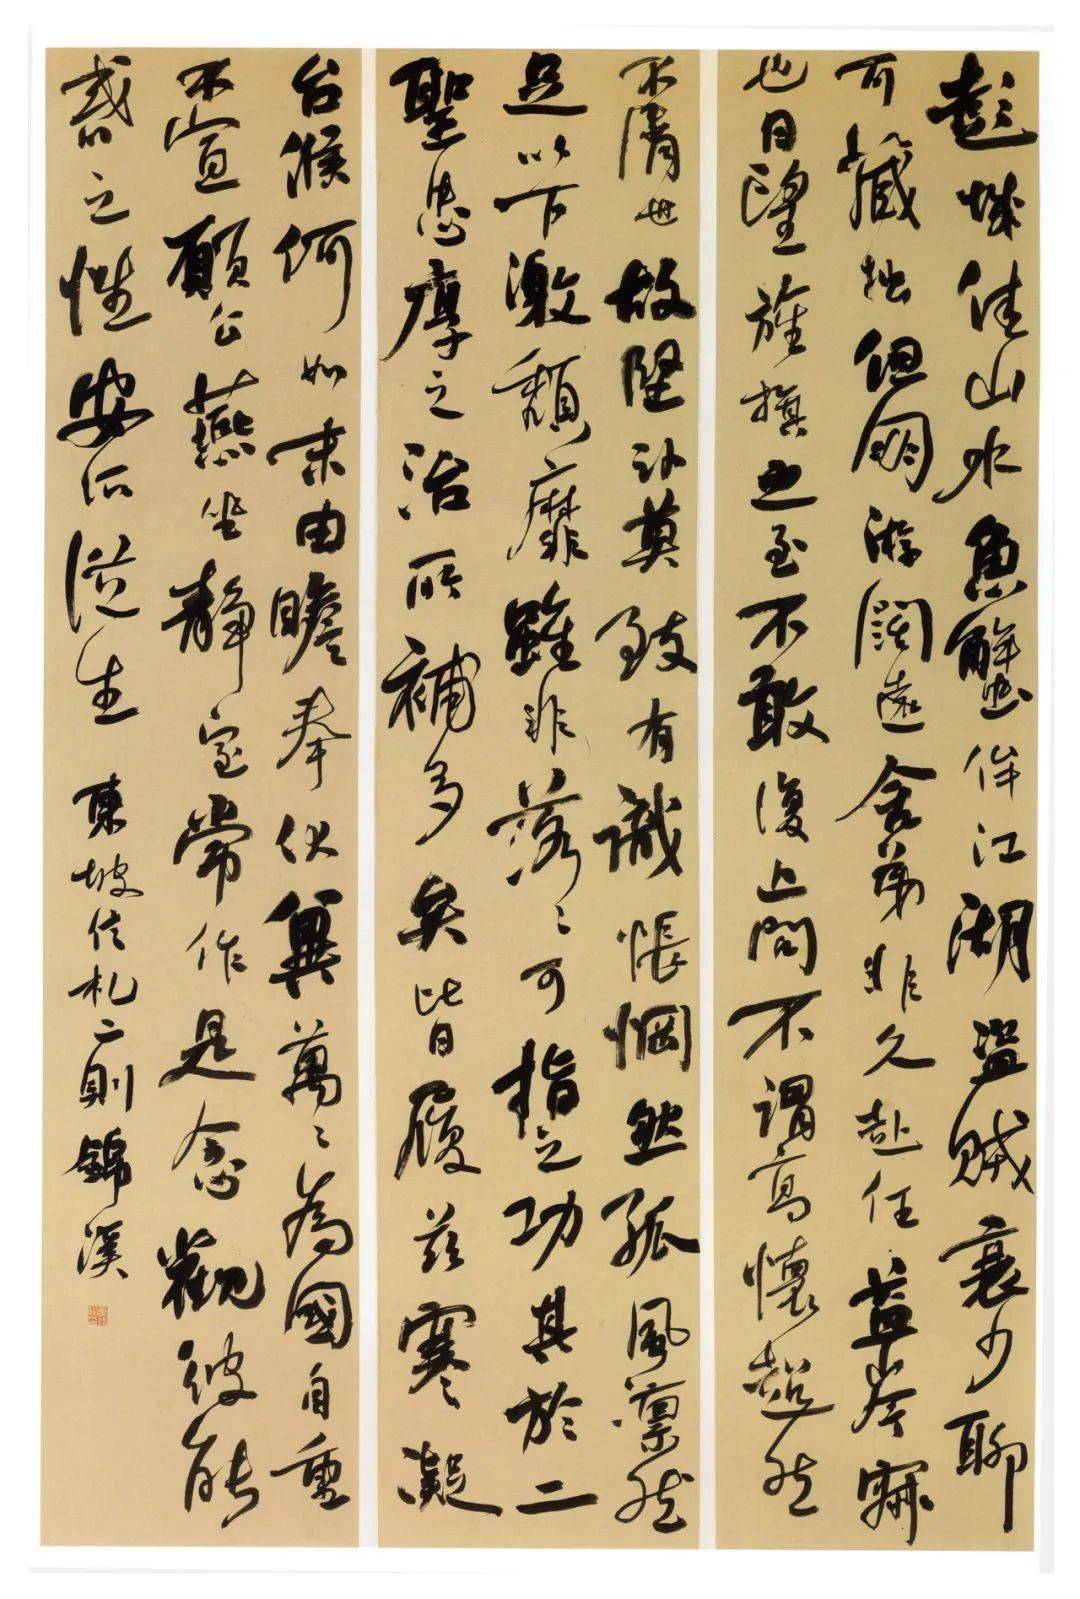 彭城佳山水魚蟹侔江湖盜賊衰少聊
可藏拙但朋游闊遠舍弟非久赴任益岑寂
也日望旌旗之至不敢復上問不謂高懷超然
不屑世故堅卧莫致有識悵惘然孤風凜然
足以下激頹靡雖非落々可指之功其於二
聖忠厚之治所補多矣比日履茲寒凝
台候何如末由瞻奉伏冀萬々為國自重
不宣願公燕坐靜室常作是念觀彼能
惑之性安所從生 東坡信札二則錦溪